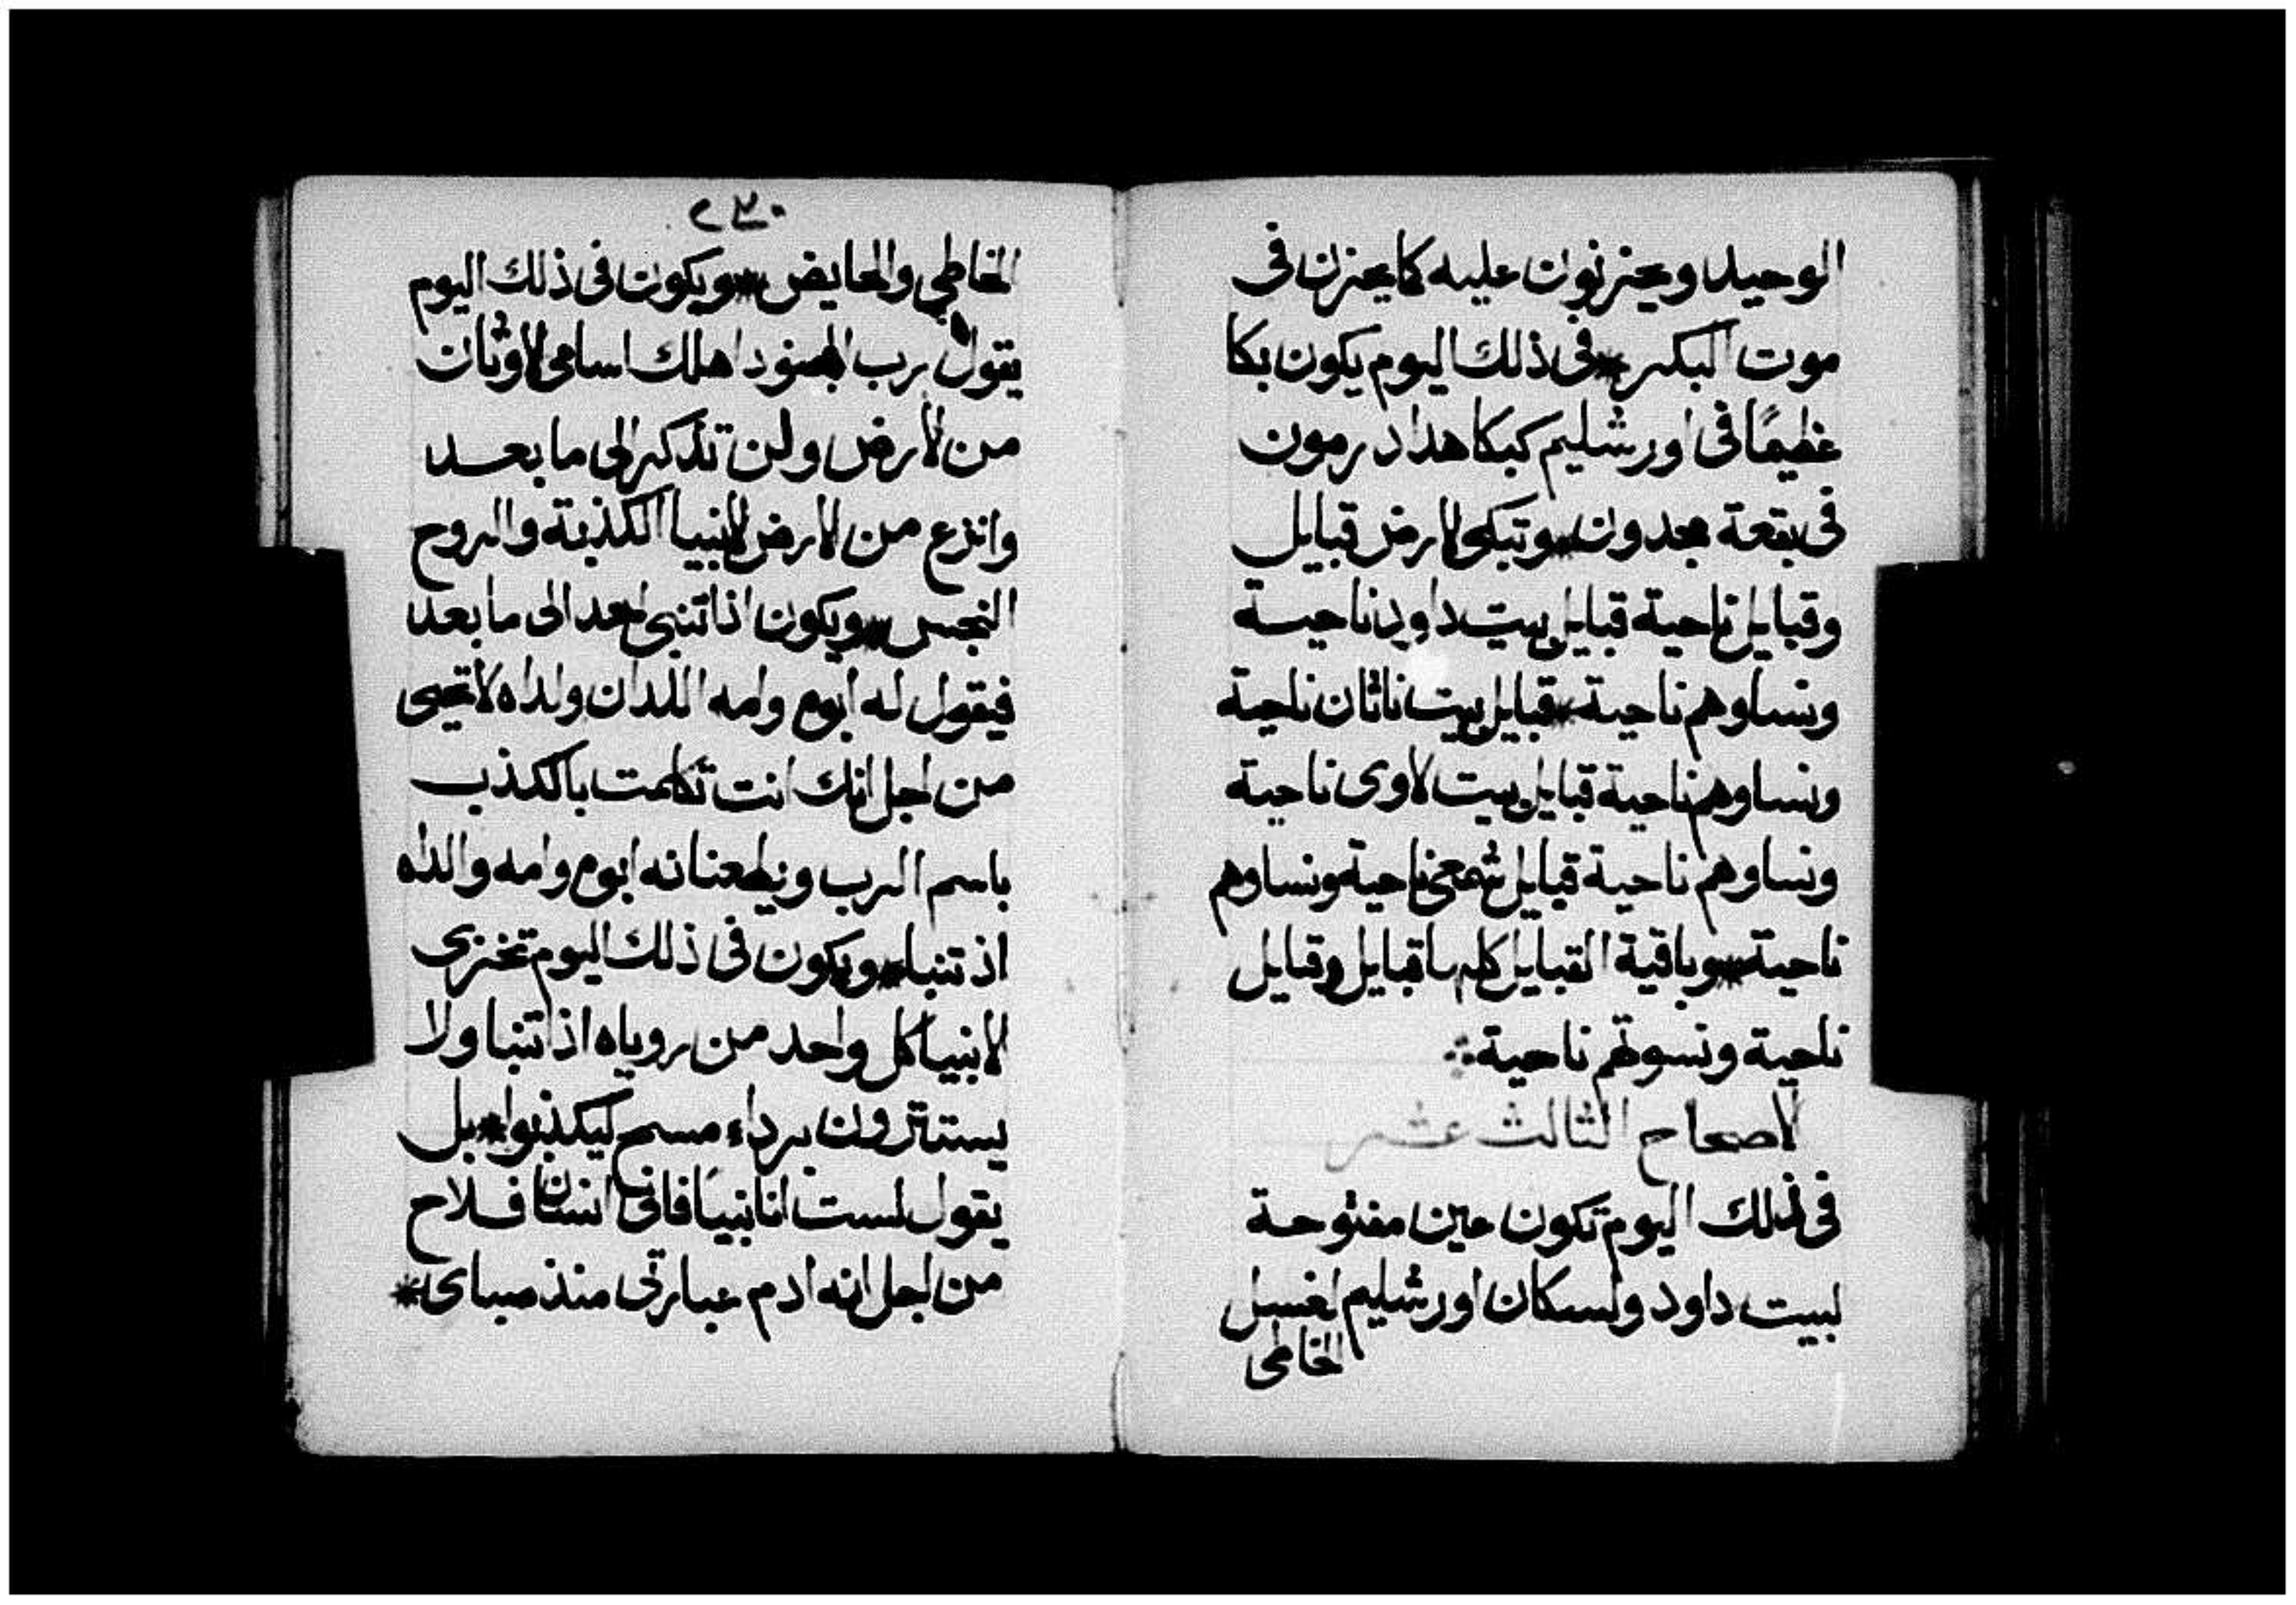 الوحيد ويحزنون عليه كما يحزن في
موت البكر * في ذلك اليوم يكون بكا
عظيمًا في اورشليم كبكا هداد رمون
في بقعة مجدون * وتبكي الارض قبايل
وقبايل ناحية قبايل بيت داود ناحية
ونساوهم ناحية * قبايل بيت ناثان ناحية
ونساوهم ناحية قبايل بيت لاوى ناحية
ونساوهم ناحية قبايل شمعي ناحية ونساوهم
ناحية * وباقية القبايل كلها قبايل وقبايل
ناحية ونسوتهم ناحية
الاصحاح الثالث عشر
في ذلك اليوم تكون عين مفتوحة
لبيت داود ولسكان اورشليم لغسل
الخاطي
٢٣٠
الخاطي والحايض * ويكون في ذلك اليوم
يقول رب الجنود اهلك اسامي الاوثان
من الارض ولن تذكر الى ما بعد
وانزع من الارض الانبيا الكذبة والروح
النجس * ويكون اذا تنبى احد الى ما بعد
فيقول له ابوه وامه اللدان ولداه لا تحيى
من اجل انك انت تكلمت بالكذب
باسم الرب ويطعنانه ابوه وامه والداه
اذ تنبا * ويكون في ذلك اليوم تخزى
الانبيا كل واحد من روياه اذا تنبا ولا
يستترون برداء مسح ليكذبوا * بل
يقول لست انا نبيًا فاني انسان فلاح
من اجل انه ادم عبارتي منذ صباى *